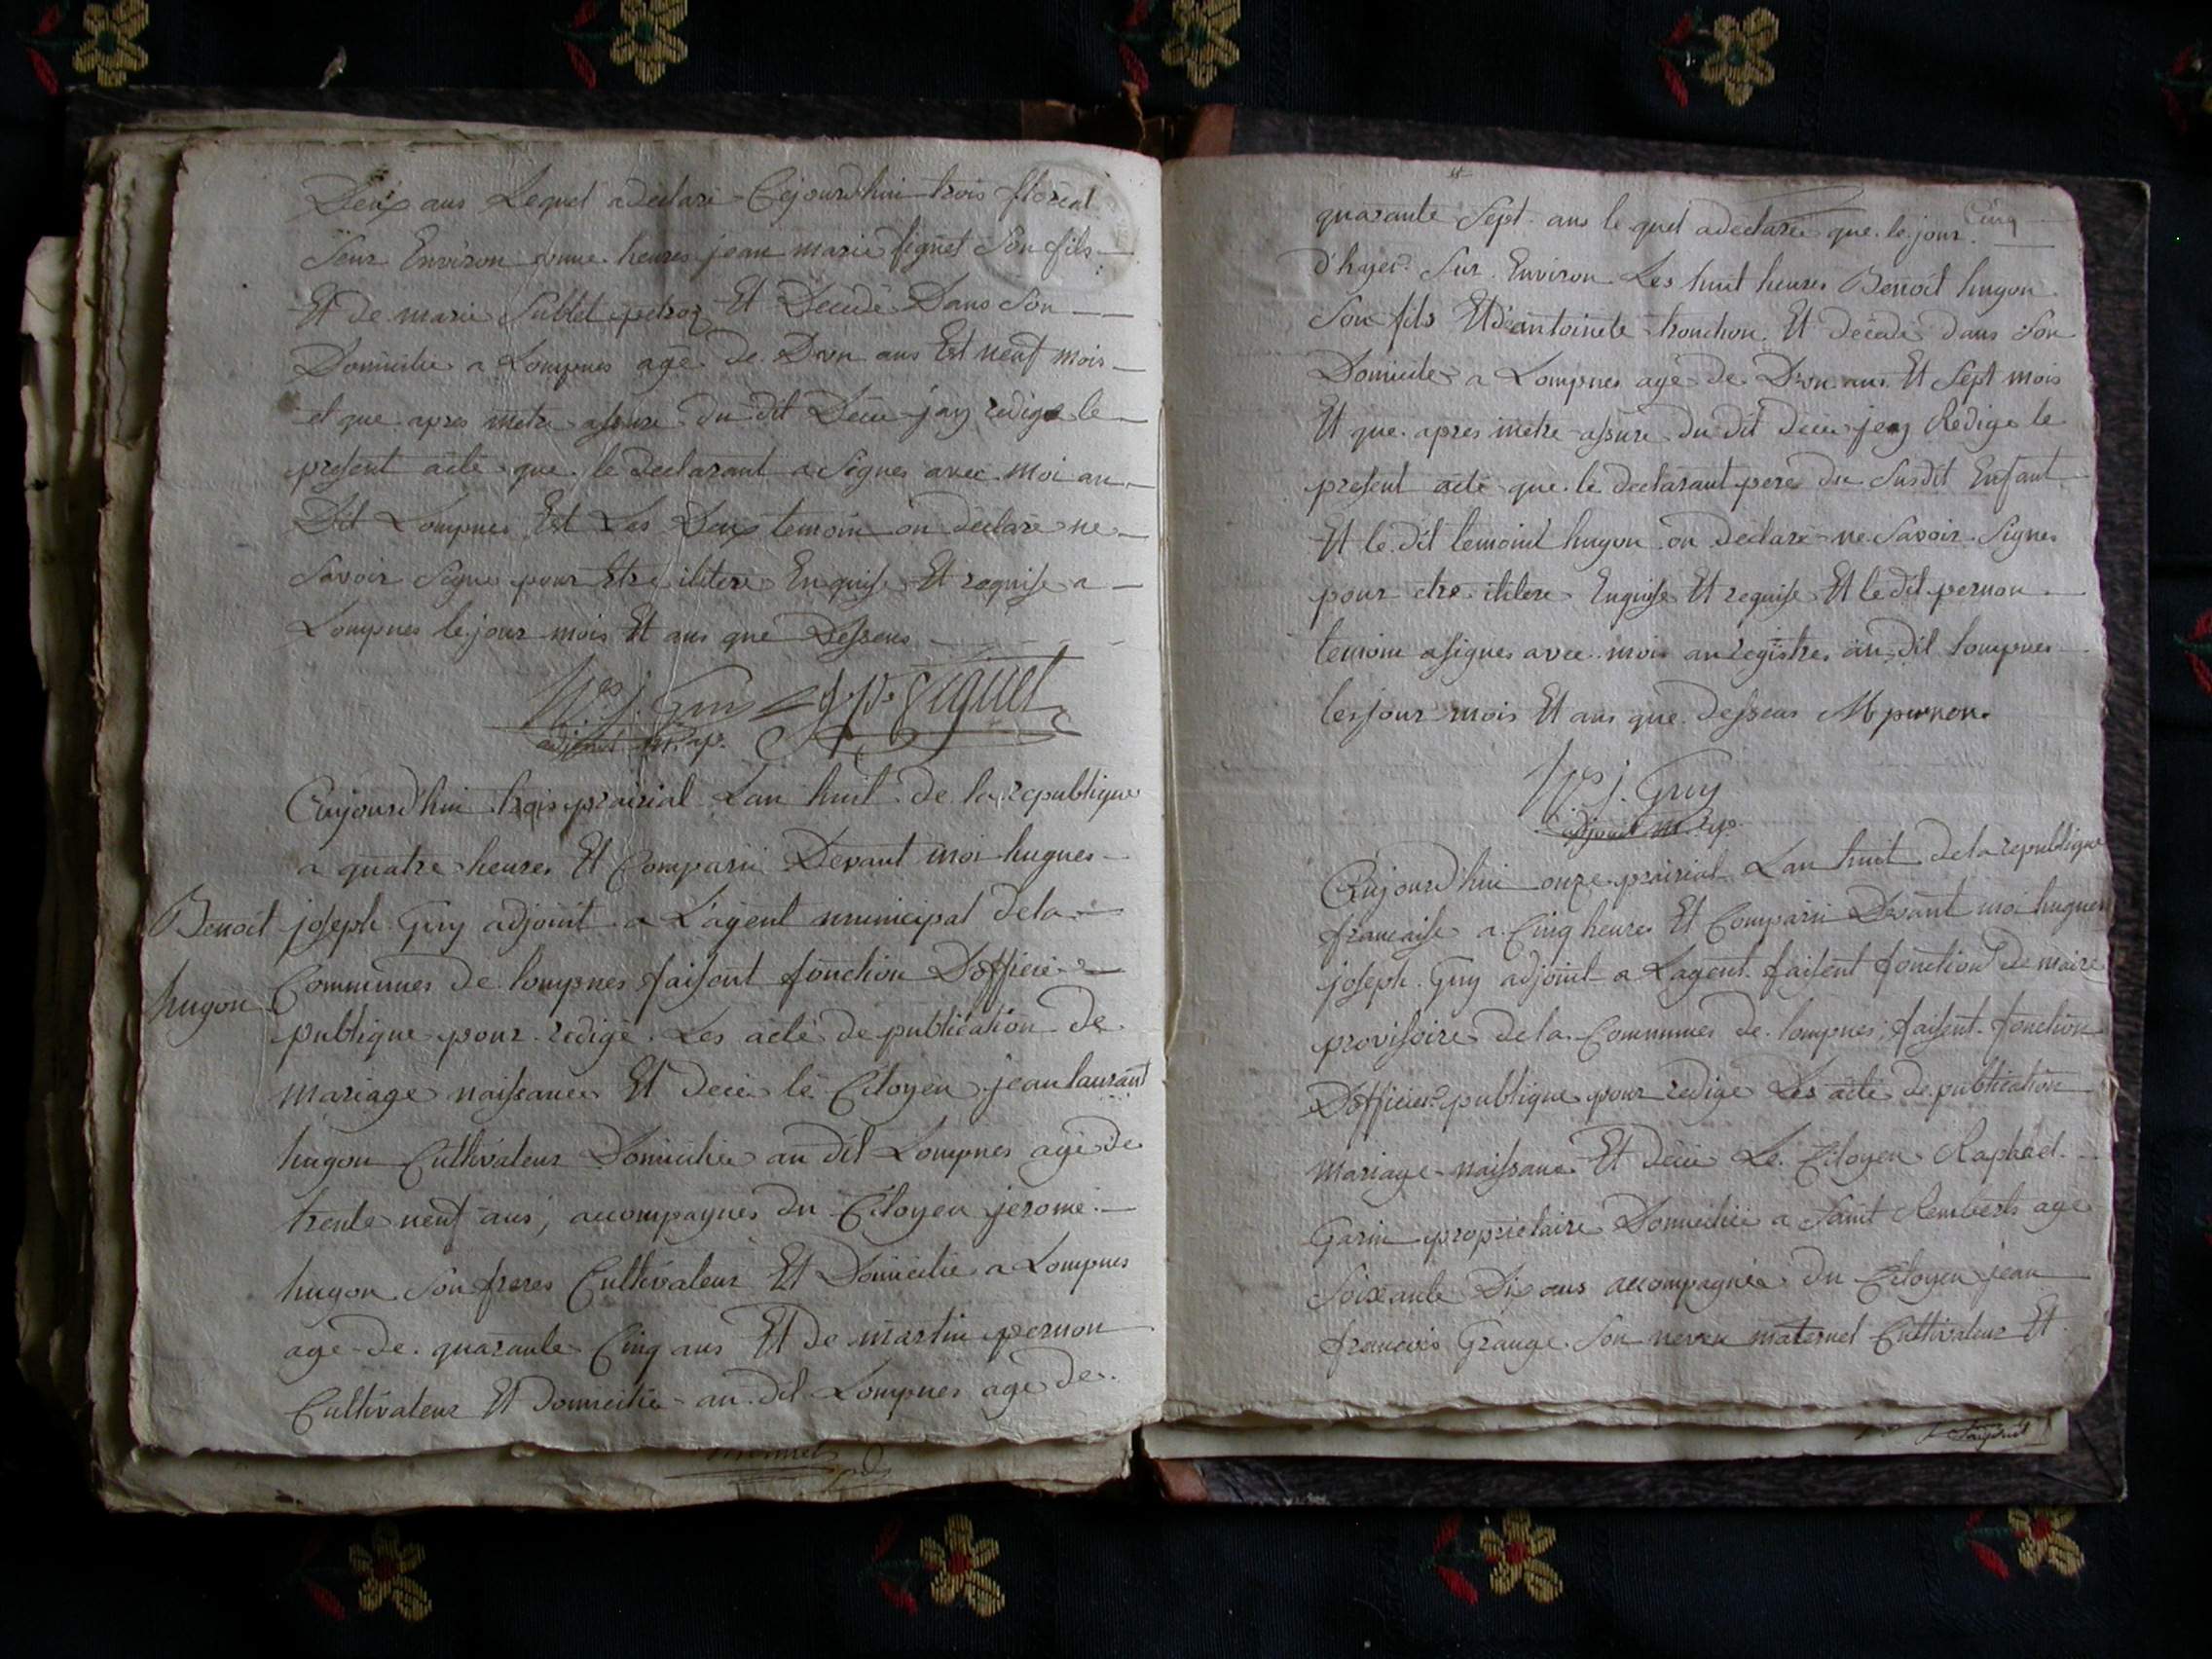 Deux ans Lequel a declaré Cejourdhui trois floréal
Seur Environ onne heures jean marie figuet Son fils
Et de marie Sublet petroz Et Decedé Dans Son
Domicilie a Lompnes age de Dron ans Est neuf mois
et que apres metre assure du dit Decée jay redige le
present acte que le declarant a Signes avec moi au
Dit Lompnes Est Les Deux temoin on declare ne
Savoir Signe pour Etre ilitere Enquise Et requise a
Lompnes le jour mois Et ans que Dessens
Hes j. Guy
adjoint m.
Aujourd'hui trois prairial Lan huit de la republique
a quatre heures Et Comparu Devant moi hugues
Benoit
joseph Guy adjoint a L'agent municipal dela
hugon
Communes de lompnes faisent fonction Dofficié
publique pour redigé Les acte de publication de
mariage naissance Et decée le Citoyen jean laurant
hugon Cultivateur Domicilie au dit Lompnes age de
trente neuf ans, accompagnes du Citoyen jerome
hugon Son freres Cultivateur Et Domicilie a Lompnes
age de quarante Cinq ans Et de martin pernon
Cultivateur Et Domicilie au dit Lompnes age de
monnet
Cinq
quarante Sept ans le quel a declaree que le jour
d'hyer Sur Environ Les huit heures Benoit hugon
Son fils Et d'eantoinete tronchon Et decedé dans Son
Domicile a Lompnes age de Dron ans Et Sept mois
Et que apres metre assure du dit decée jeay Redige le
present acte que le declarant pere du Susdit Enfant
Et le dit temoint hugon on declare ne Savoir Signes
pour etre ilitere Enquise Et requise Et le dit pernon
temoin a signes avec mois au registres au dit lompnes
les jour mois Et ans que dessens M pernon
Hes j. Guy
adjoint m.
Aujourd'hui onze prairial Lan huit dela republique
francaise a Cinq heures Et Comparu Devant moi hugues
joseph Guy adjoint a Lagent faisent fonction de maire
provisoire dela Communes de lompnes faisent fonction
Dofficier publique pour redigé Les acte de publication
mariage naissance Et decée Le Citoyen Raphael
Garin proprietaire Domicilié a Saint Remberts age
Soixante Dix ans accompagnée du Citoyen jean
francois Grange Son neveu maternel Cultivateur Et